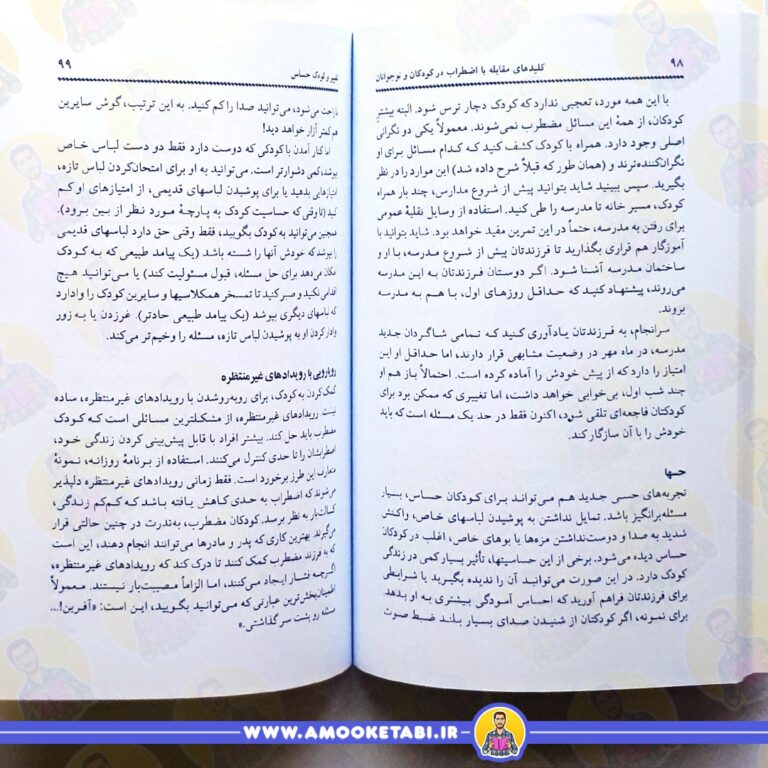 ۹۸
کلیدهای مقابله با اضطراب در کودکان و نوجوانان
با این همه مورد، تعجبی ندارد که کودک دچار ترس شود. البته بیشترِ
کودکان، از همهٔ این مسائل مضطرب نمی‌شوند. معمولاً یکی دو نگرانی
اصلی وجود دارد. همراه با کودک کشف کنید که کدام مسائل برای او
نگران‌کننده‌ترند و (همان طور که قبلاً شرح داده شد) این موارد را در نظر
بگیرید. سپس ببینید شاید بتوانید پیش از شروع مدارس، چند بار همراه
کودک، مسیر خانه تا مدرسه را طی کنید. استفاده از وسایل نقلیهٔ عمومی
برای رفتن به مدرسه، حتماً در این تمرین مفید خواهد بود. شاید بتوانید با
آموزگار هم قراری بگذارید تا فرزندتان پیش از شروع مدرسه، با او و
ساختمان مدرسه آشنا شود. اگر دوستان فرزندتان به این مدرسه
می‌روند، پیشنهاد کنید که حداقل روزهای اول، با هم به مدرسه
بروند.
سرانجام، به فرزندتان یادآوری کنید که تمامی شاگردان جدید
مدرسه، در ماه مهر در وضعیت مشابهی قرار دارند، اما حداقل او این
امتیاز را دارد که از پیش خودش را آماده کرده است. احتمالاً باز هم او
چند شب اول، بی‌خوابی خواهد داشت، اما تغییری که ممکن بود برای
کودکتان فاجعه‌ای تلقی شود، اکنون فقط در حد یک مسئله است که باید
خودش را با آن سازگار کند.
حسها
تجربه‌های حسی جدید هم می‌تواند برای کودکان حساس، بسیار
مسئله‌برانگیز باشد. تمایل نداشتن به پوشیدن لباسهای خاص، واکنش
شدید به صدا و دوست‌نداشتن مزه‌ها یا بوهای خاص، اغلب در کودکان
حساس دیده می‌شود. برخی از این حساسیتها، تأثیر بسیار کمی در زندگی
کودک دارد. در این صورت می‌توانید آن را ندیده بگیرید یا شرایطی
برای فرزندتان فراهم آورید که احساس آسودگی بیشتری به او بدهد.
برای نمونه، اگر کودکتان از شنیدن صدای بسیار بلند ضبط صوت
۹۹
تغییر و کودک حساس
ناراحت می‌شود، می‌توانید صدا را کم کنید. به این ترتیب، گوش سایرین
هم کمتر آزار خواهد دید!
اما کنار آمدن با کودکی که دوست دارد فقط دو دست لباس خاص
بپوشد، کمی دشوارتر است. می‌توانید به او برای امتحان‌کردن لباس تازه،
امتیازهایی بدهید یا برای پوشیدن لباسهای قدیمی، از امتیازهای او کم
کنید (تا وقتی که حساسیت کودک به پارچهٔ مورد نظر از بین برود).
همچنین می‌توانید به کودک بگویید، فقط وقتی حق دارد لباسهای قدیمی
را بپوشد که خودش آنها را شسته باشد (یک پیامد طبیعی که به کودک
امکان می‌دهد برای حل مسئله، قبول مسئولیت کند) یا می‌توانید هیچ
اقدامی نکنید و صبر کنید تا تمسخر همکلاسیها و سایرین کودک را وادارد
لباسهای دیگری بپوشد (یک پیامد طبیعی حادتر). غرزدن یا به زور
وادار کردن او به پوشیدن لباس تازه، مسئله را وخیم‌تر می‌کند.
رویارویی با رویدادهای غیرمنتظره
کمک‌کردن به کودک، برای روبه‌روشدن با رویدادهای غیرمنتظره، ساده
نیست. رویدادهای غیرمنتظره، از مشکلترین مسائلی است که کودک
مضطرب باید حل کند. بیشتر افراد با قابل پیش‌بینی کردن زندگی خود،
اضطرابشان را تا حدی کنترل می‌کنند. استفاده از برنامهٔ روزانه، نمونهٔ
متعارف این طرز برخورد است. فقط زمانی رویدادهای غیرمنتظره دلپذیر
می‌شوند که اضطراب به حدی کاهش یافته باشد که کم‌کم زندگی،
کسالت‌بار به نظر برسد. کودکان مضطرب، به‌ندرت در چنین حالتی قرار
می‌گیرند. بهترین کاری که پدر و مادرها می‌توانند انجام دهند، این است
که به فرزند مضطرب کمک کنند تا درک کند که رویدادهای غیرمنتظره،
اگرچه فشار ایجاد می‌کنند، اما الزاماً مصیبت‌بار نیستند. معمولاً
اطمینان‌بخش‌ترین عبارتی که می‌توانید بگویید، این است: «آفرین!...
مسئله رو پشت سر گذاشتی.»
WWW.AMOOKETABI.IR